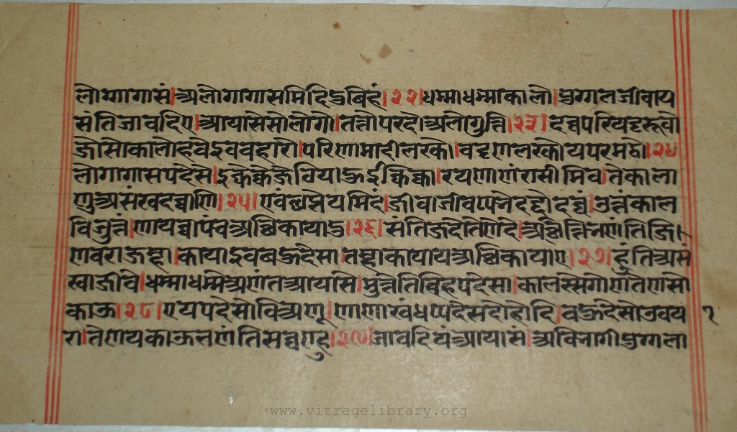 लोगागासं।अलोगागासमिदिदुविहं।२२।धम्माधम्माकालो।पुग्गलजीवाय
संतिजावदिए।आयासेसोलोगो।तत्तोपरदोअलोगुत्ति।२३।दव्वपरिवट्टरूवो
जोसोकालोहवेइववहारो।परिणामादीलरको।वट्टणलरकोयपरमठो।२४
लोगागासपदेसे।इक्केक्केजेठियाहुइक्किक्का।रयणाणंरासीमिवतेकाला
णुअसंखदव्वाणि।२५।एवंछब्भेयमिदं।जीवाजीवप्पभेददोदव्वं।उत्तंकाल
विजुत्तं।णायव्वापंचअत्थिकायादु।२६।संतिजदोतेणेदे।अत्थित्तिभणंतिजि।
णवराजम्हा।कायाइवबहुदेसा।तम्हाकायायअत्थिकायाए।२७।हुंतिअसं
खाजीवे।धम्माधम्मेअणंतआयासे।मुत्तेतिविहपदेसा।कालस्सेगोणतेणसो
काऊ।२८।एयपदेसोविअणू।णाणाखंधप्पदेसदोहोदि।बहुदेसोउवय १
रा।तेणयकाऊभणंतिसव्वण्हु।२९।जावदियंआयासं।अविभागीपुग्गला
www.vitragelibrary.org